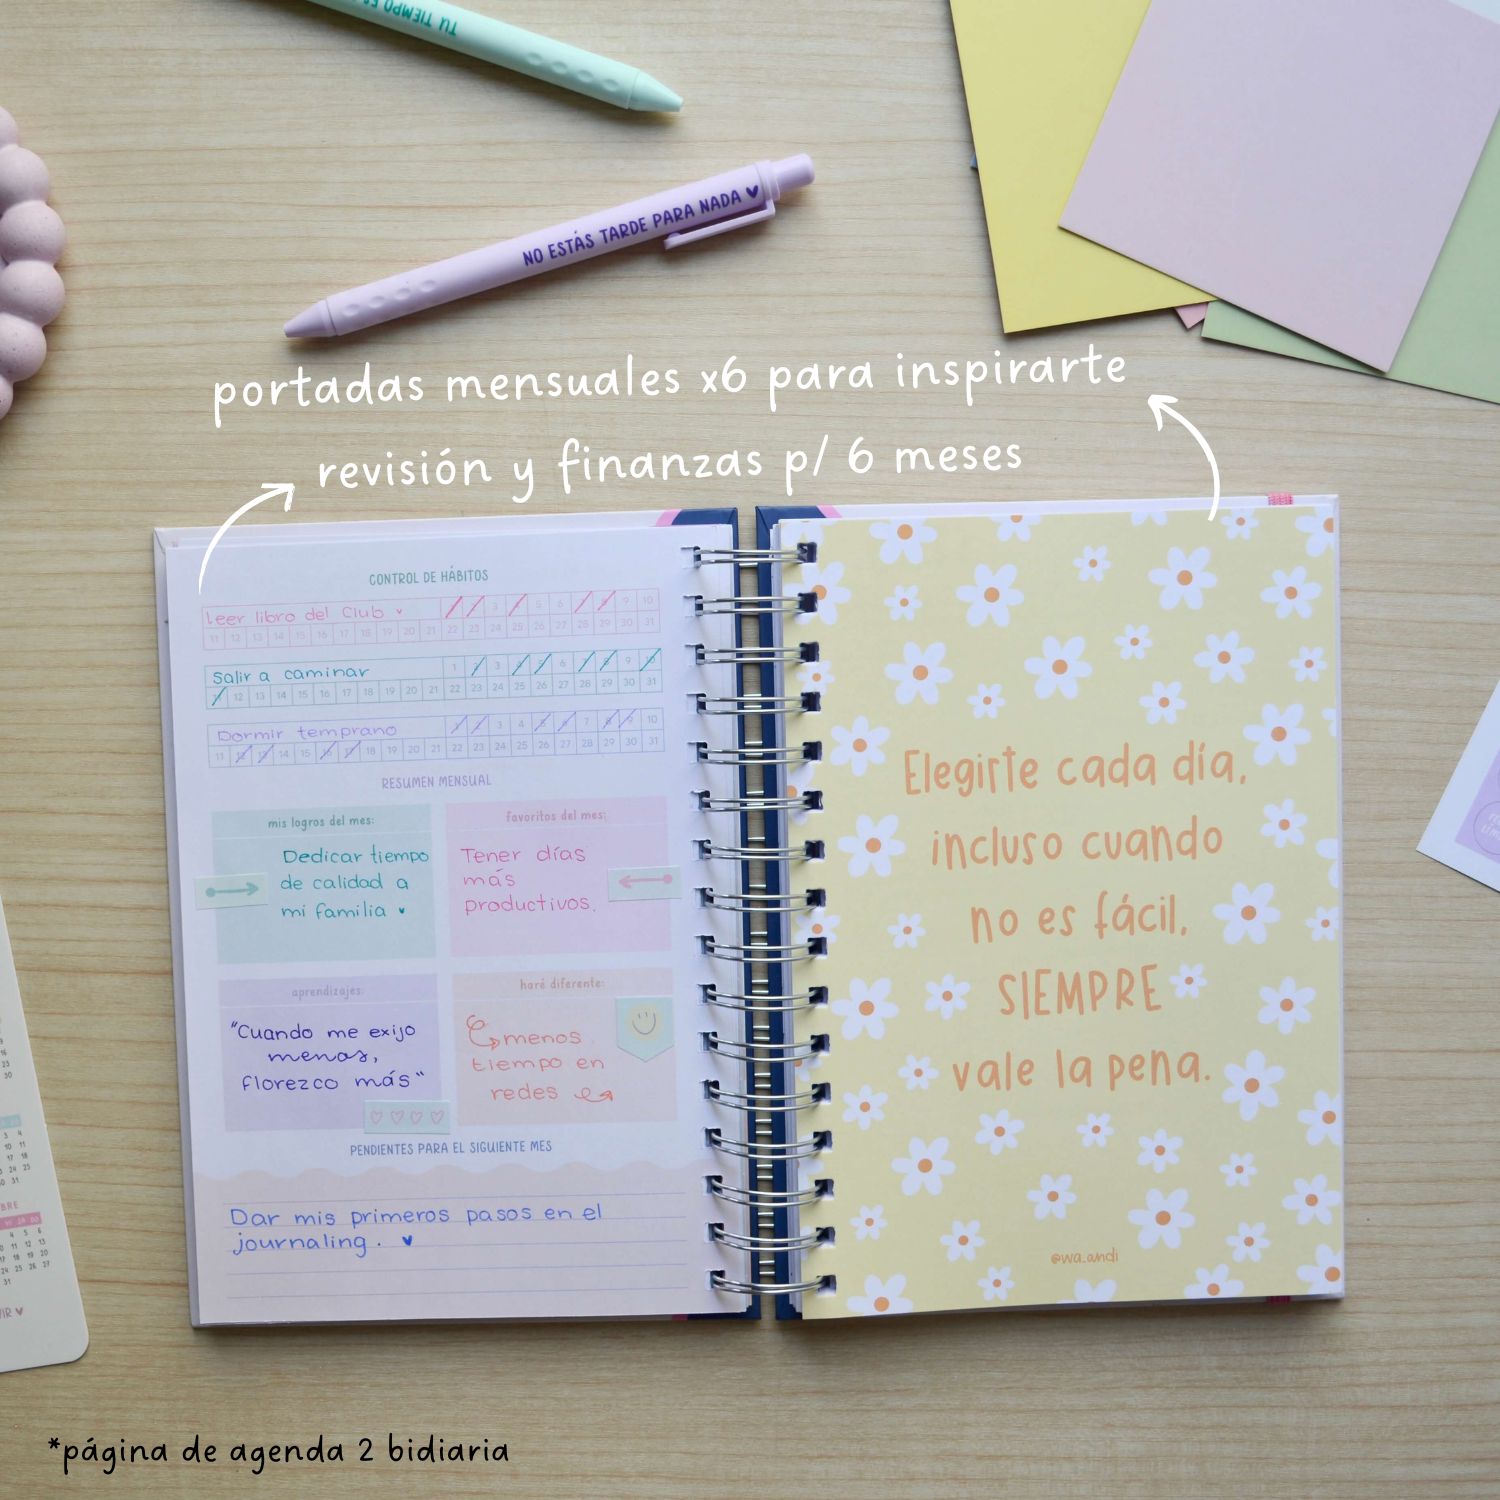 TU TIEMPO ES
NO ESTÁS TARDE PARA NADA ♥
portadas mensuales x6 para inspirarte
revisión y finanzas p/ 6 meses
CONTROL DE HÁBITOS
Leer libro del Club ♥
1 2 3 4 5 6 7 8 9 10
11 12 13 14 15 16 17 18 19 20 21 22 23 24 25 26 27 28 29 30 31
Salir a caminar
1 2 3 4 5 6 7 8 9 10
11 12 13 14 15 16 17 18 19 20 21 22 23 24 25 26 27 28 29 30 31
Dormir temprano
1 2 3 4 5 6 7 8 9 10
11 12 13 14 15 16 17 18 19 20 21 22 23 24 25 26 27 28 29 30 31
RESUMEN MENSUAL
mis logros del mes:
Dedicar tiempo
de calidad a
mi familia ♥
favoritos del mes:
Tener días
más
productivos.
aprendizajes:
"Cuando me exijo
menos,
florezco más"
haré diferente:
menos
tiempo en
redes
PENDIENTES PARA EL SIGUIENTE MES
Dar mis primeros pasos en el
journaling. ♥
Elegirte cada día,
incluso cuando
no es fácil,
SIEMPRE
vale la pena.
@wa.andi
*página de agenda 2 bidiaria